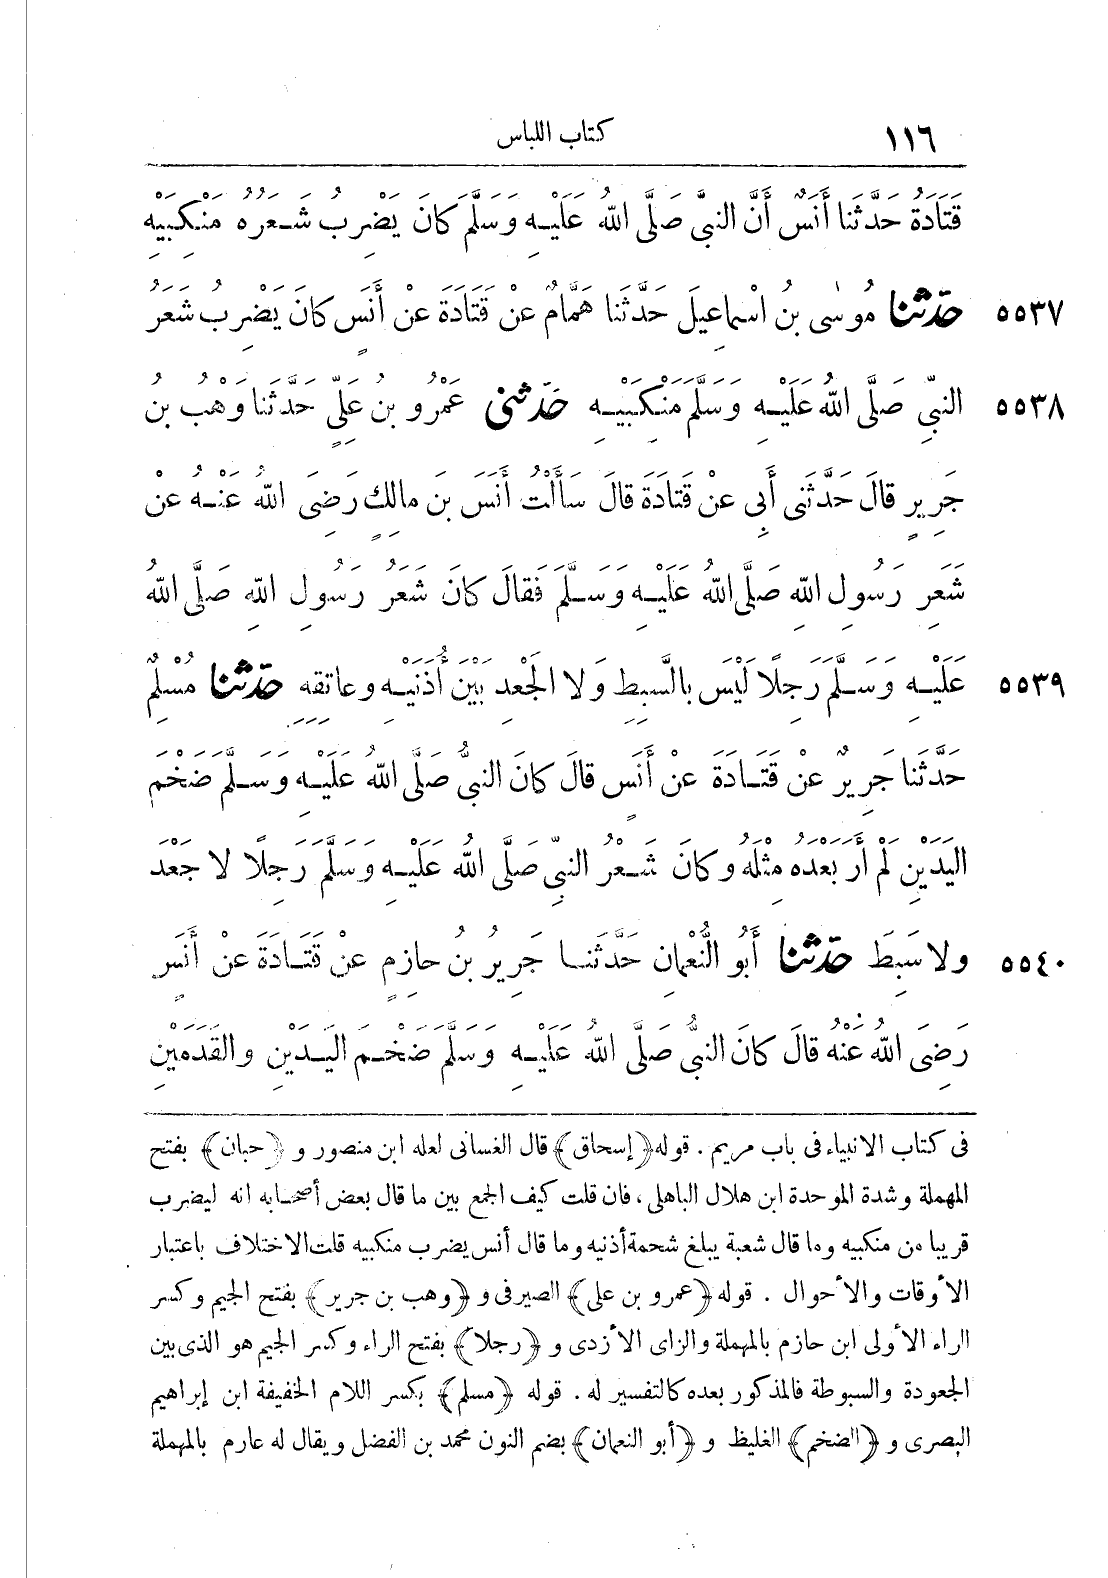 ١١٦ كتاب اللباس
قَتَادَةُ حَدَّثَنا أَنَسٌ أَنَّ النبىَّ صَلَّى اللهُ عَلَيْهِ وَسَلَّمَ كَانَ يَضْرِبُ شَعَرُهُ مَنْكِبَيْهِ
٥٥٣٧ حدّثنا مُوسٰى بنُ اسْمَاعِيلَ حَدَّثَنا هَمَّامٌ عنْ قَتَادَةَ عنْ أَنَسٍ كَانَ يَضْرِبُ شَعَرُ
٥٥٣٨ النبِّى صَلَّى اللهُ عَلَيْهِ وَسَلَّمَ مَنْكِبَيْهِ حَدّثنى عَمْرُو بنُ عَلِىٍّ حَدَّثَنا وَهْبُ بنُ
جَرِيرٍ قالَ حَدَّثَنى أَبِى عنْ قَتَادَةَ قالَ سَأَلْتُ أَنَسَ بنَ مالِكٍ رَضِىَ اللهُ عَنْهُ عنْ
شَعَرِ رَسُولِ اللهِ صَلَّى اللهُ عَلَيْهِ وَسَلَّمَ فَقالَ كانَ شَعَرُ رَسُولِ اللهِ صَلَّى اللهُ
٥٥٣٩ عَلَيْهِ وَسَلَّمَ رَجِلًا لَيْسَ بالسَّبِطِ وَلا الجَعْدِ بَيْنَ أُذُنَيْهِ وعاتِقِهِ حدّثنا مُسْلِمٌ
حَدَّثَنا جَرِيرٌ عنْ قَتَادَةَ عنْ أَنَسٍ قالَ كانَ النبىُّ صَلَّى اللهُ عَلَيْهِ وَسَلَّمَ ضَخْمَ
اليَدَيْنِ لَمْ أَرَ بَعْدَهُ مِثْلَهُ وكانَ شَعْرُ النبِّى صَلَّى اللهُ عَلَيْهِ وَسَلَّمَ رَجِلًا لا جَعْدَ
٥٥٤٠ ولا سَبِطَ حدّثنا أَبُو النُّعْمانِ حَدَّثَنا جَرِيرُ بنُ حازِمٍ عنْ قَتَادَةَ عنْ أَنَسٍ
رَضِىَ اللهُ عَنْهُ قالَ كانَ النبىُّ صَلَّى اللهُ عَلَيْهِ وَسَلَّمَ ضَخْمَ اليَدَيْنِ والقَدَمَيْنِ
فى كتاب الانبياء فى باب مريم. قوله ﴿إسحاق﴾ قال الغسانى لعله ابن منصور و ﴿حبان﴾ بفتح
المهملة وشدة الموحدة ابن هلال الباهلى، فان قلت كيف الجمع بين ما قال بعض أصحابه انه ليضرب
قريبا من منكبيه وما قال شعبة يبلغ شحمة أذنيه وما قال أنس يضرب منكبيه قلت الاختلاف باعتبار
الأوقات والأحوال. قوله ﴿عمرو بن على﴾ الصيرفى و ﴿وهب بن جرير﴾ بفتح الجيم وكسر
الراء الأولى ابن حازم بالمهملة والزاى الأزدى و ﴿رجلا﴾ بفتح الراء وكسر الجيم هو الذى بين
الجعودة والسبوطة فالمذكور بعده كالتفسير له. قوله ﴿مسلم﴾ بكسر اللام الخفيفة ابن إبراهيم
البصرى و ﴿الضخم﴾ الغليظ و ﴿أبو النعمان﴾ بضم النون محمد بن الفضل ويقال له عارم بالمهملة